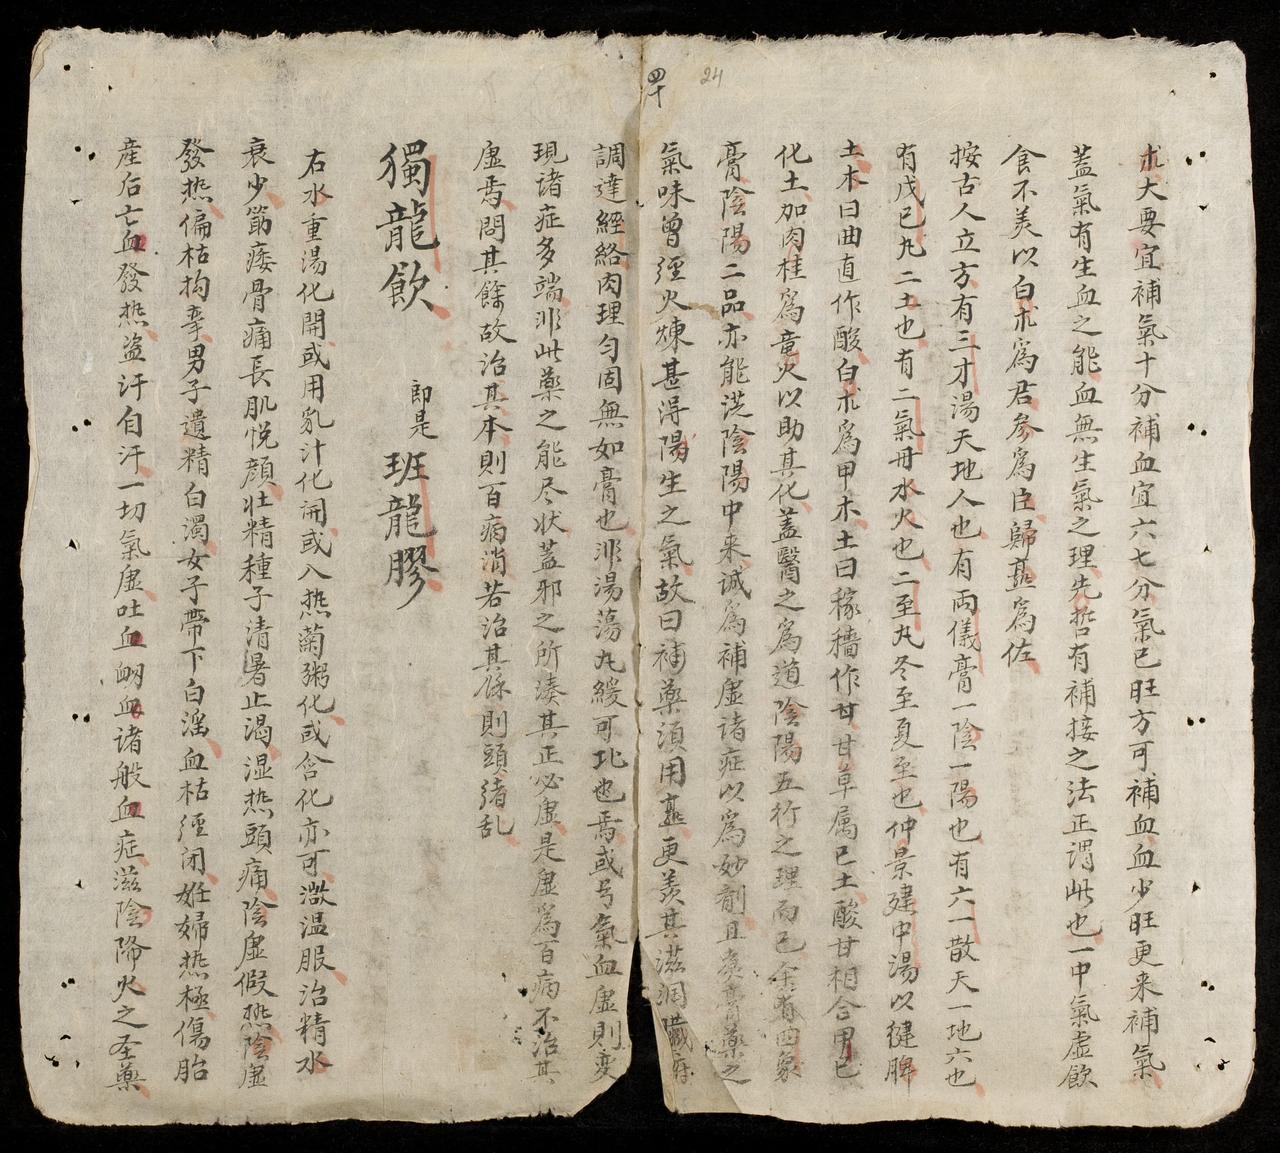 四十
24
朮大要宜補氣十分補血宜六七分氣已旺方可補血血少旺更来補氣
蓋氣有生血之能血無生氣之理先哲有補接之法正謂此也一中氣虚飲
食不美以白朮為君參為臣歸薑為佐
按古人立方有三才湯天地人也有両儀膏一陰一陽也有六一散天一地六也
有戊己丸二土也有二氣丹水火也二至丸冬至夏至也仲景建中湯以健脾
土木曰曲直作酸白朮為甲木土曰稼穡作甘甘草属己土酸甘相合甲己
化土加肉桂為竜火以助其化蓋醫之為道陰陽五行之理而已余有四象
膏陰陽二品亦能従陰陽中来誠為補虚诸症以為妙剤且煑膏藥之
氣味曾經火煉甚淂陽生之氣故曰補藥須用薑更羙其滋潤臓府
調達經絡肉理匀固無如膏也非湯蕩丸緩可比也焉或号氣血虚則变
現诸症多端非此藥之能尽状蓋邪之所湊其正必虚是虚為百病不治其
虚焉問其餘故治其本則百病消若治其條則頭緒乱
獨龍飲 即是 班龍膠
右水重湯化開或用乳汁化開或入热菊粥化或含化亦可漵温服治精水
衰少筋痿骨痛長肌悦顔壮精種子清暑止渴湿热頭痛陰虚假熱陰虚
發热偏枯拘牽男子遺精白濁女子帶下白滛血枯經闭妊婦热極傷胎
産后亡血發热盗汗自汗一切氣虚吐血衂血诸般血症滋陰降火之圣藥